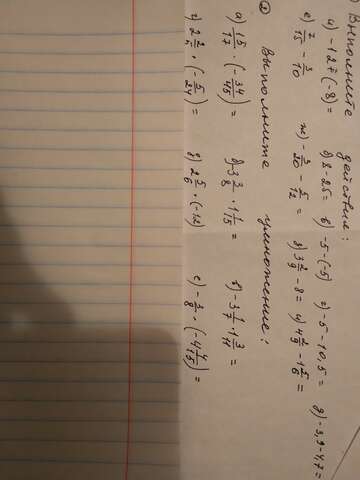 Выполните действия:
а) -12+(-8)= б) 8-25= в) -5-(-5) г) -5-10,5= д) -3,9-4,7=
е) 7/15 - 3/10 ж) -3/20 - 5/12 = з) 3 2/9 - 8= и) 4 2/9 - 1 5/6 =
② Выполните умножение:
а) 15/17 · (-34/45)= б) 3 3/8 · 1 1/15 = в) -3 1/7 · 1 3/11 =
г) 2 2/5 · (-5/24)= д) 2 5/6 · (-12) е) -3/8 · (-4 4/15)=